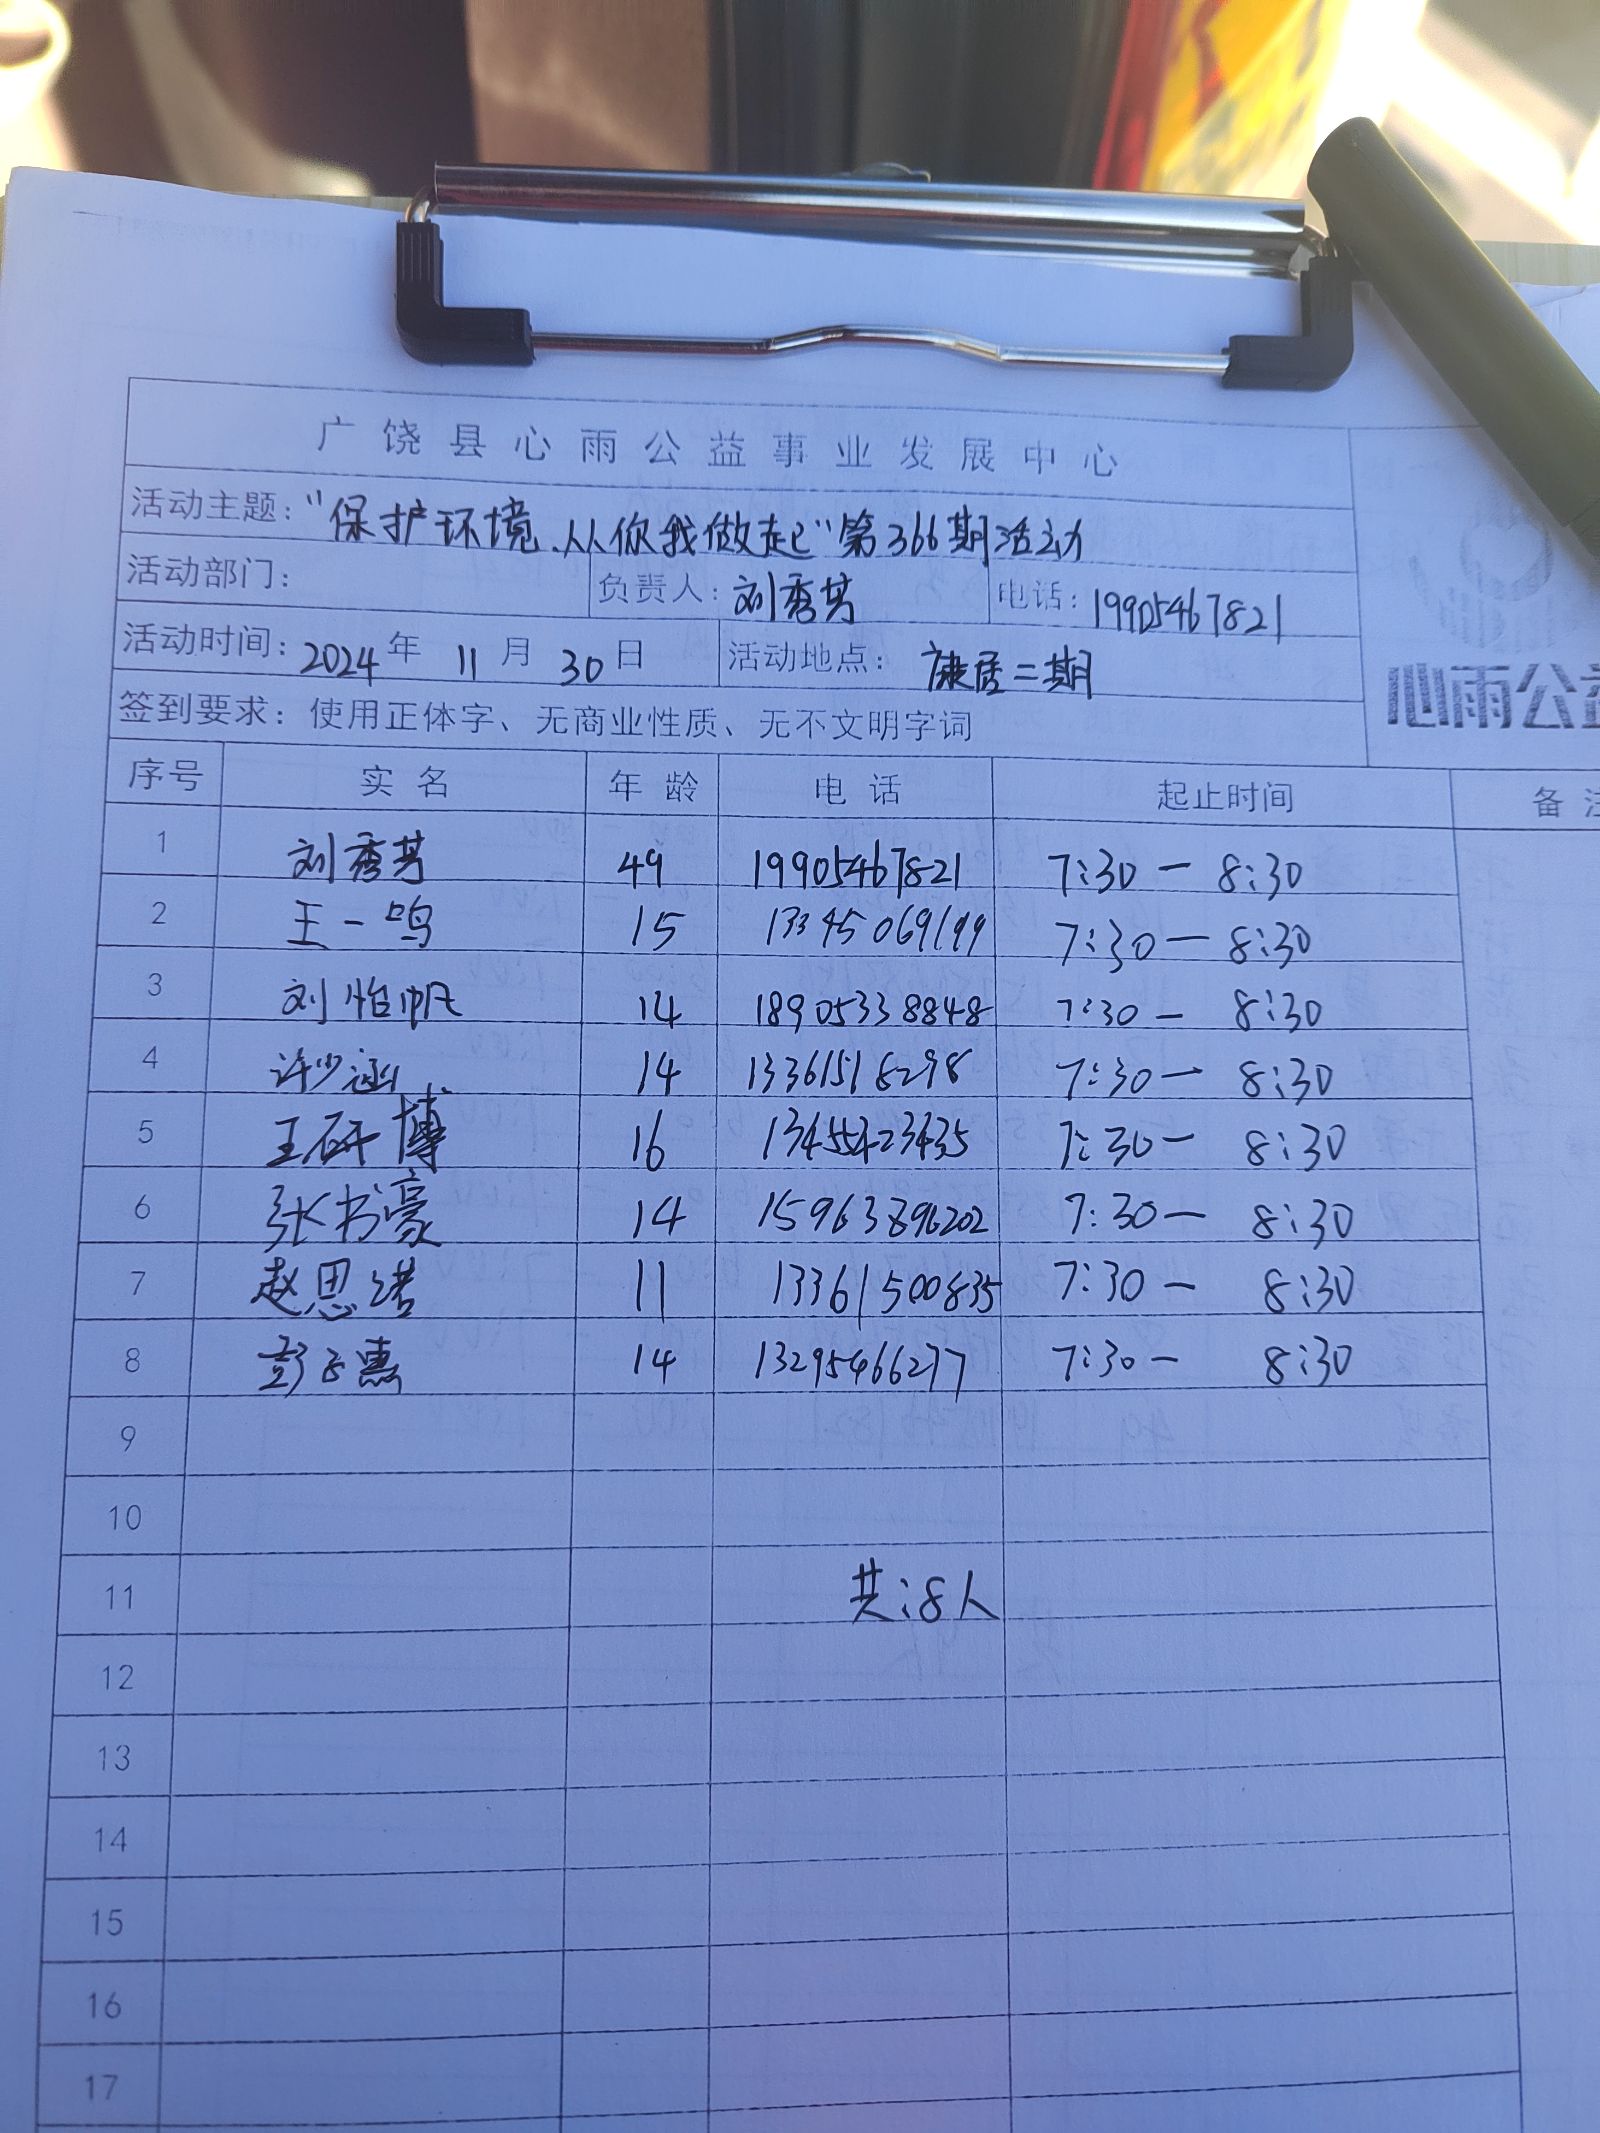 广饶县心雨公益事业发展中心
活动主题："保护环境.从你我做起"第366期活动
活动部门： 负责人：刘秀芳 电话：19905467821
活动时间：2024年 11月 30日 活动地点：康居二期
心雨公益
签到要求：使用正体字、无商业性质、无不文明字词
序号 实名 年龄 电话 起止时间 备注
1 刘秀芳 49 19905467821 7:30—8:30
2 王一鸣 15 13345069199 7:30—8:30
3 刘怡帆 14 18905338848 7:30—8:30
4 许少涵 14 13361518298 7:30—8:30
5 王研博 16 13455423435 7:30—8:30
6 张书豪 14 15963896202 7:30—8:30
7 赵思诺 11 13361500835 7:30—8:30
8 彭惠 14 13295466277 7:30—8:30
9
10
11 共:8人
12
13
14
15
16
17